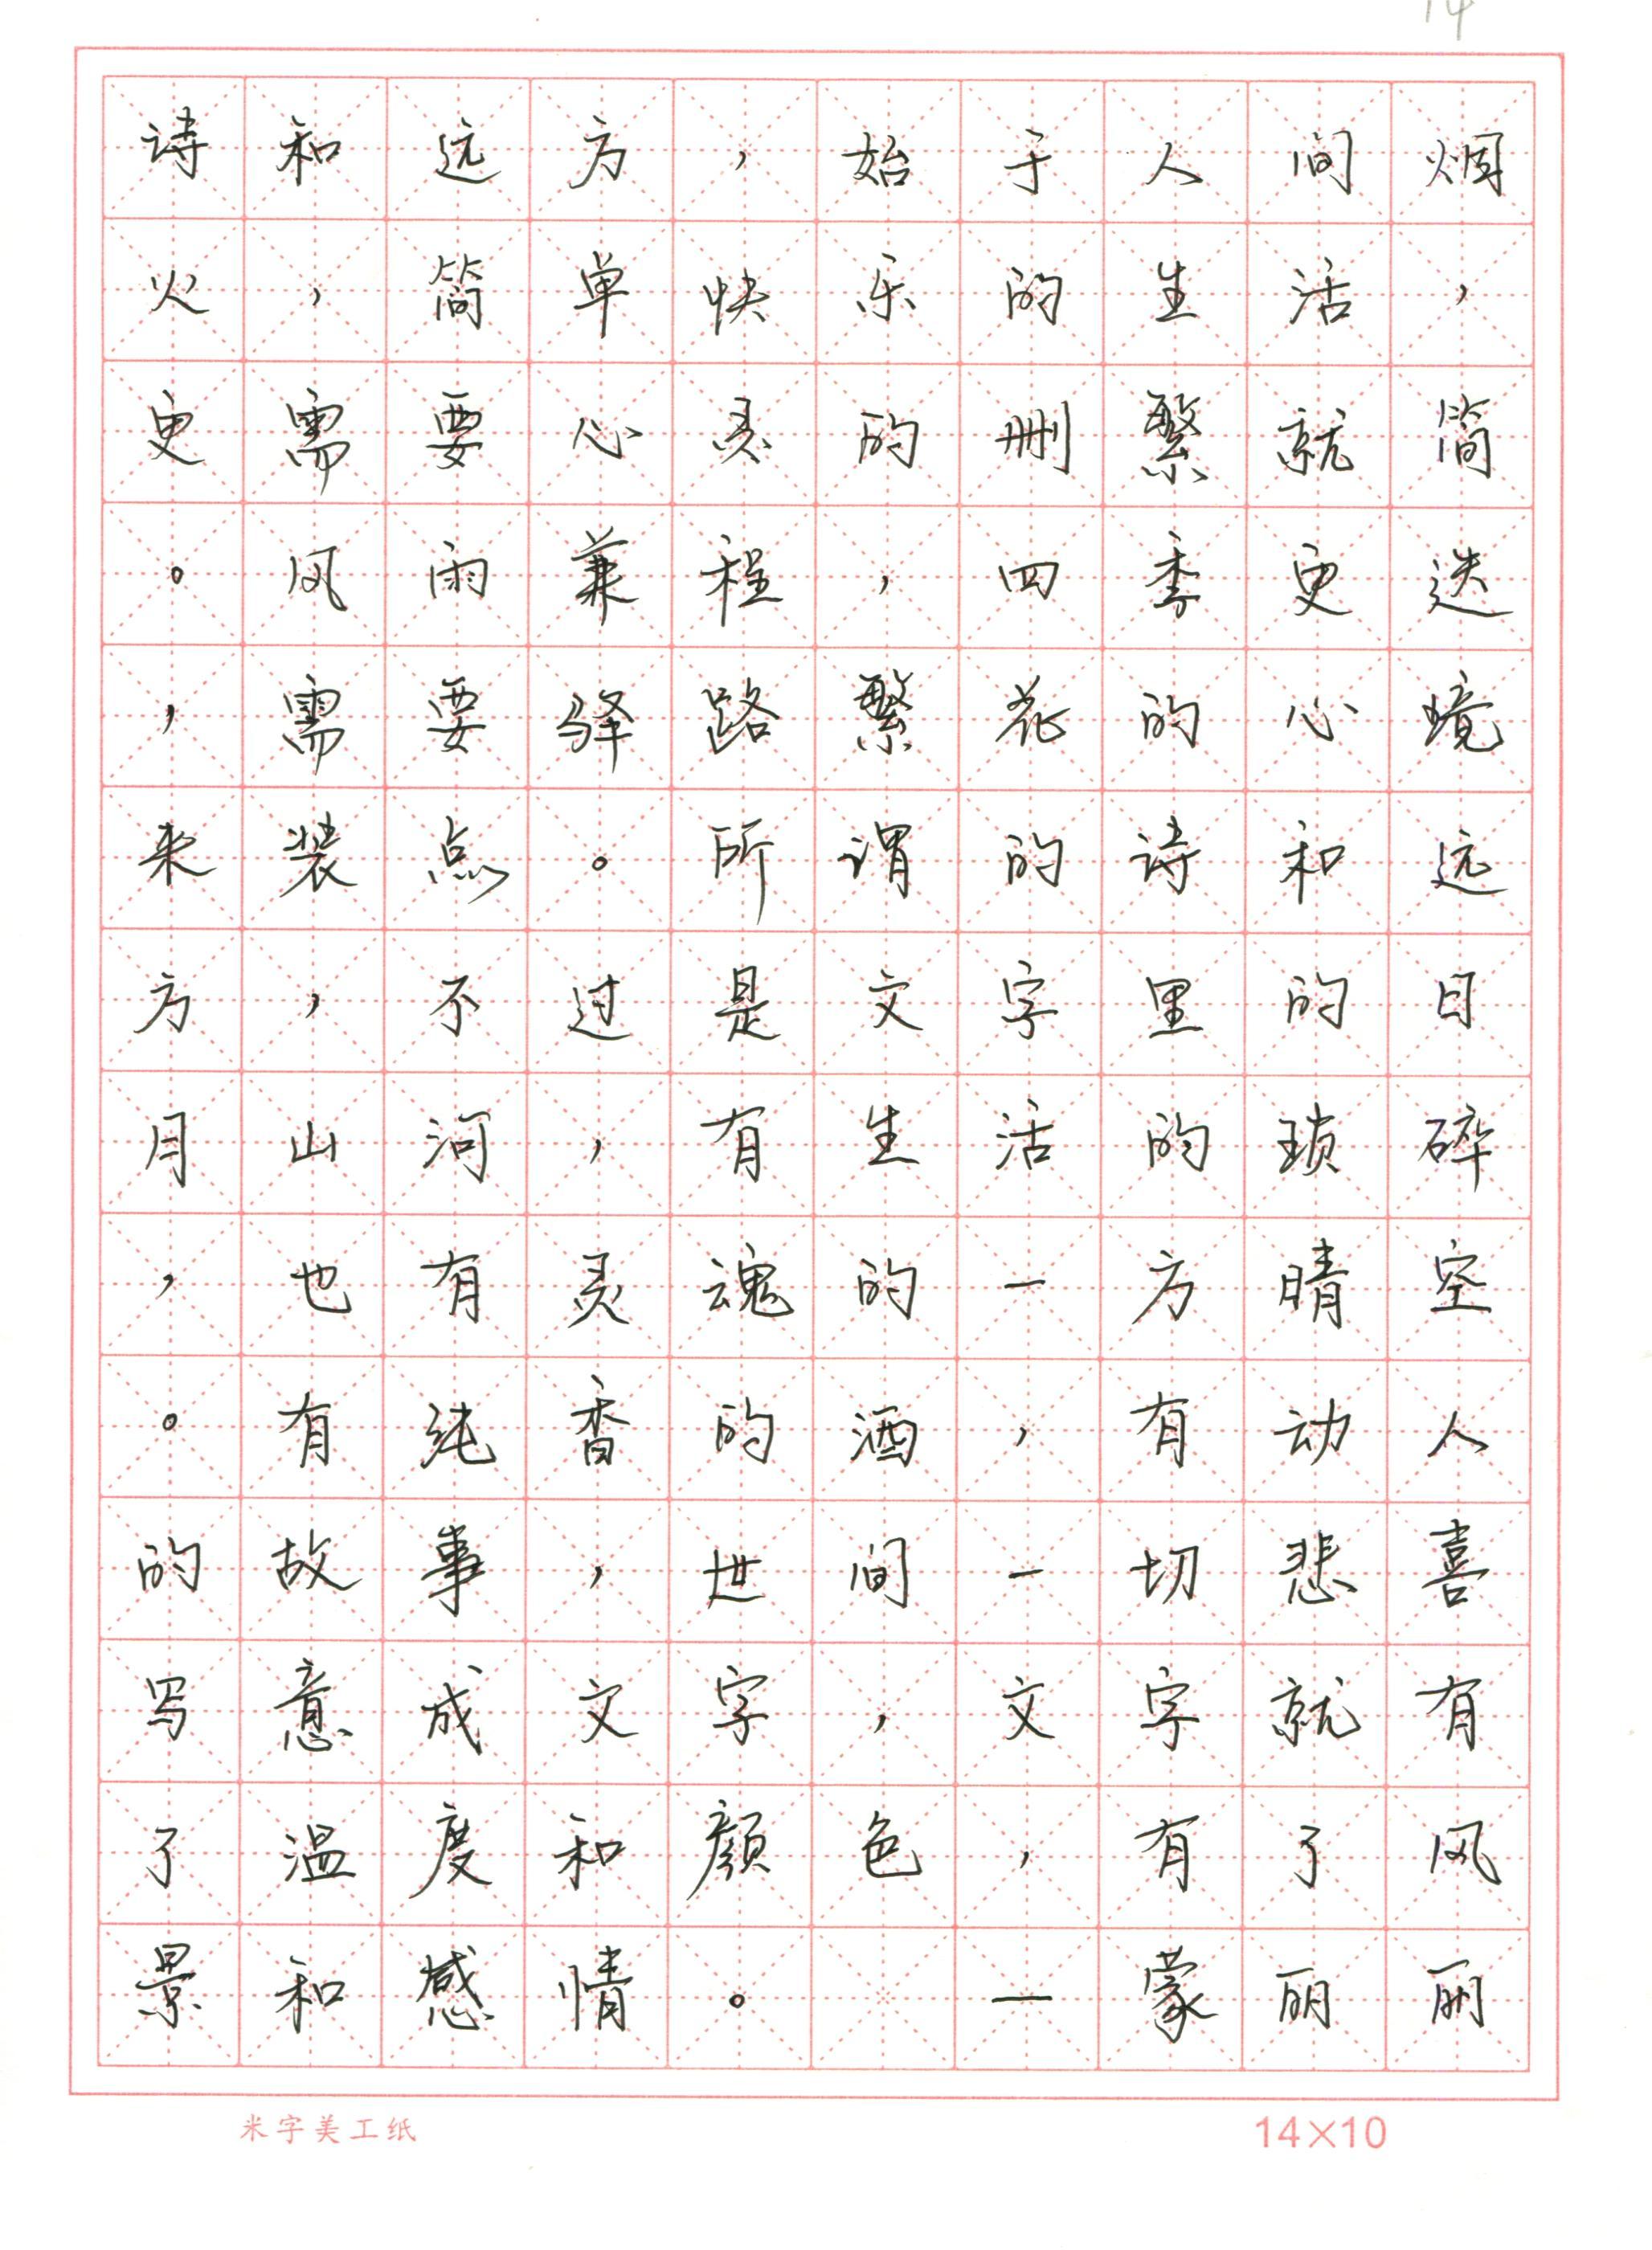 14
诗和远方，始于人间烟
火，简单快乐的生活，
更需要心灵的删繁就简
。风雨兼程，四季更迭
，需要驿路繁花的心境
来装点。所谓的诗和远
方，不过是文字里的日
月山河，有生活的琐碎
，也有灵魂的一方晴空
。有纯香的酒，有动人
的故事，世间一切悲喜
写意成文字，文字就有
了温度和颜色，有了风
景和感情。 —蒙丽丽
米字美工纸 14×10